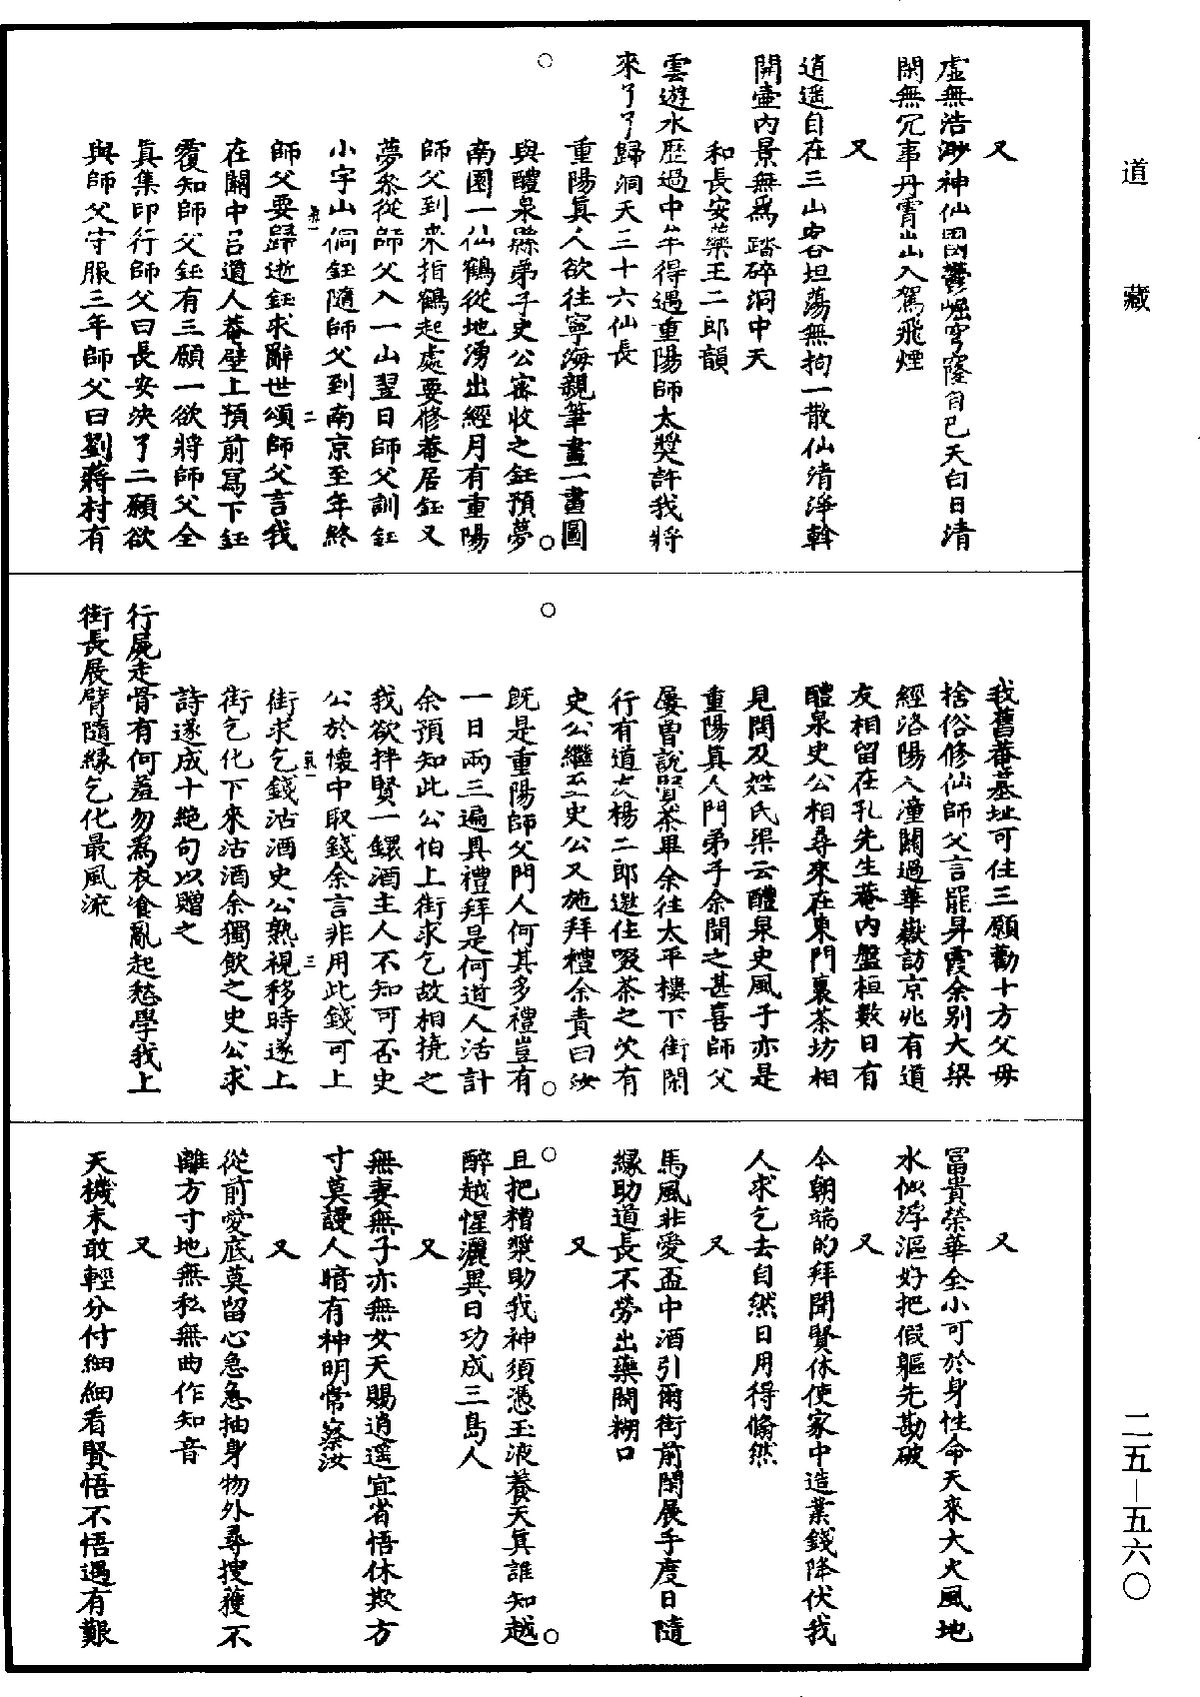 道藏
又
虛無浩渺神仙國鬱崛穹窿自已天白日清
閑無冗事丹霄出入駕飛煙
又
逍遥自在三山客坦蕩無拘一散仙清淨斡
開壼内景無爲踏碎洞中天
和長安藥王二郎韻
雲遊水歷過中年得遇重陽師太奬許我將
來了了歸洞天三十六仙長
重陽眞人欲往寧海親筆畫一畫圖
與醴泉縣弟子史公密收之鈺預夢
南園一仙鶴從地湧出經月有重陽
師父到來指鶴起處要修菴居鈺又
夢叅從師父入一山翌日師父訓鈺
小字山侗鈺隨師父到南京至年終
二
師父要歸逝鈺求辭世頌師父言我
在關中吕道人菴壁上預前寫下鈺
覆知師父鈺有三願一欲將師父全
眞集印行師父曰長安決了二願欲
與師父守服三年師父曰劉蔣村有
我舊菴基址可住三願勸十方父母
捨俗修仙師父言罷昇霞余别大梁
經洛陽入潼關過華嶽訪京兆有道
友相留在孔先生菴内盤桓數日有
醴泉史公相尋來在東門裏茶坊相
見問及姓氏渠云醴泉史風子亦是
重陽眞人門弟子余聞之甚喜師父
屢曾說賢茶畢余往太平樓下街閑
行有道友楊二郎邀住啜茶之次有
史公繼至史公又施拜禮余責曰汝
旣是重陽師父門人何其多禮豈有
一日兩三遍具禮拜是何道人活計
余預知此公怕上街求乞故相撓之
我欲拌賢一鐶酒主人不知可否史
公於懷中取錢余言非用此錢可上
三
街求乞錢沽酒史公熟視移時遂上
街乞化下來沽酒余獨飲之史公求
詩遂成十絶句以贈之
行屍走骨有何羞勿爲衣飡亂起愁學我上
街長展臂隨緣乞化最風流
又
冨貴榮華全小可於身性命天來大火風地
水似浮漚好把假軀先勘破
又
今朝端的拜聞賢休使家中造業錢降伏我
人求乞去自然日用得翛然
又
馬風非愛盃中酒引爾街前閑展手度日隨
緣助道長不勞出藥問糊口
又
且把糟漿助我神須憑玉液養天眞誰知越
醉越惺灑異日功成三島人
又
無妻無子亦無女天賜逍遥宜省悟休欺方
寸莫謾人暗有神明常察汝
又
從前愛底莫留心急急抽身物外尋搜獲不
離方寸地無私無曲作知音
又
天機未敢輕分付細細看賢悟不悟遇有艱
二五—五六〇